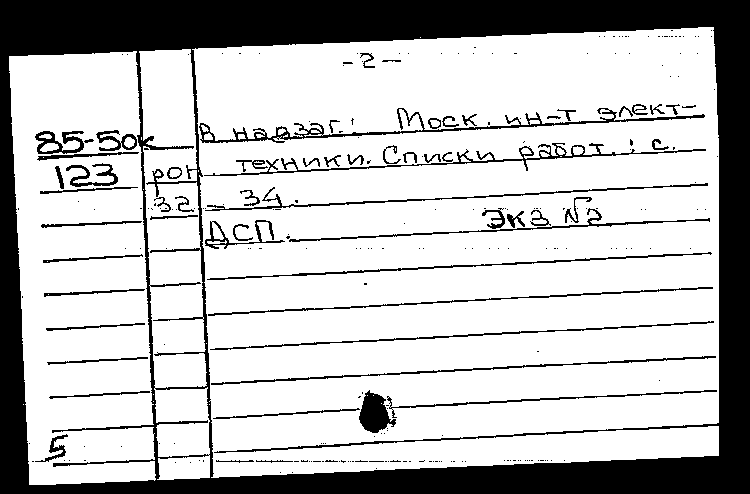 -2-
85-50к В надзаг.: Моск. ин-т элект-
123 рон. техники. Списки работ.: с.
32-34.
ДСП. Экз №2
5